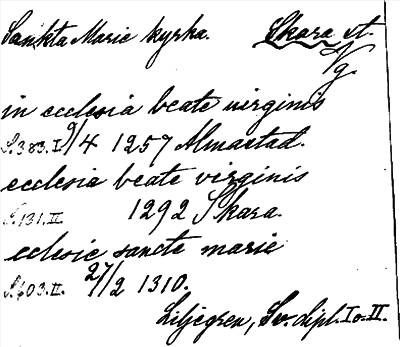 Sankta Marie kyrka. Skara st.
Vg.
in ecclesia beate virginis
S.383.I. 9/4 1257 Almastad.
ecclesia beate virginis
S.131.II. 1292 Skara.
eclesie sancte marie
S.603.II. 27/2 1310.
Liljegren, Sv. dipl. I o. II.